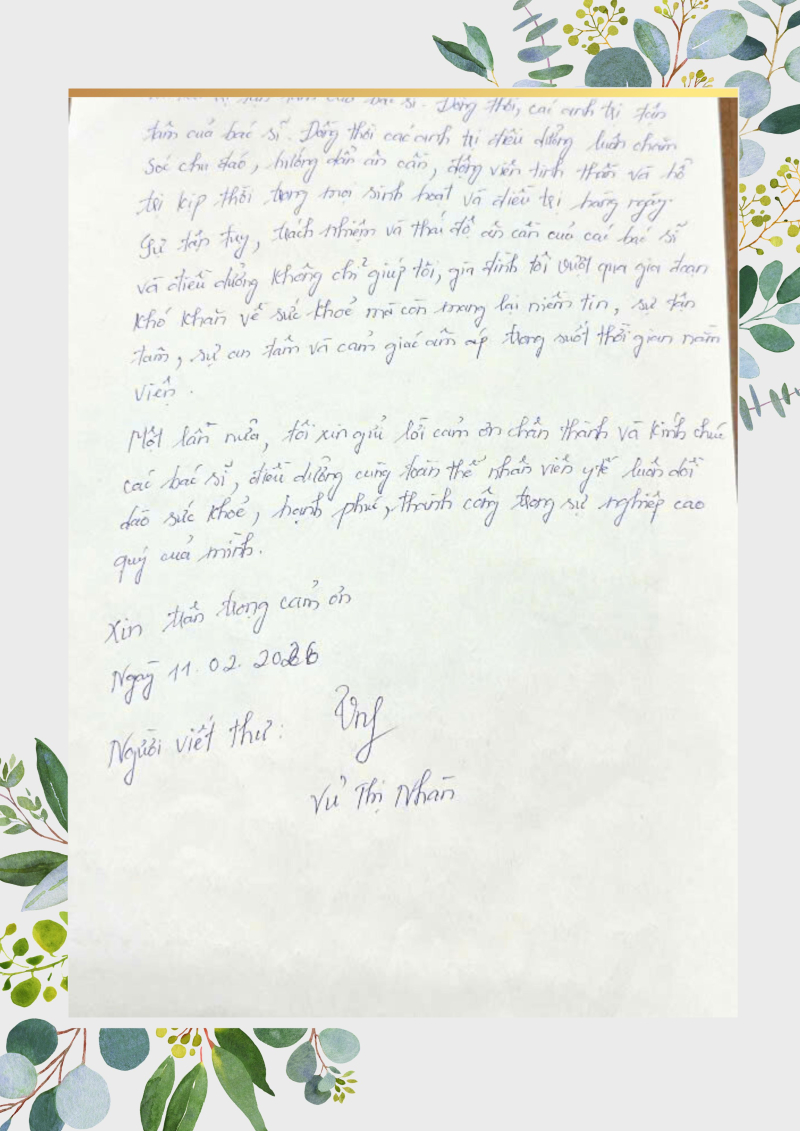 bác sĩ. Đồng thời, các anh trị tận
tâm của bác sĩ. Đồng thời các anh trị điều dưỡng luôn chăm
sóc chu đáo, hướng dẫn ân cần, động viên tinh thần và hỗ
trợ kịp thời trong mọi sinh hoạt và điều trị hằng ngày.
Sự tận tuỵ, trách nhiệm và thái độ ân cần của các bác sĩ
và điều dưỡng không chỉ giúp tôi, gia đình tôi vượt qua gia đoạn
khó khăn về sức khoẻ mà còn mang lại niềm tin, sự tận
tâm, sự an tâm và cảm giác ấm áp trong suốt thời gian nằm
viện.
Một lần nữa, tôi xin gửi lời cảm ơn chân thành và kính chúc
các bác sĩ, điều dưỡng cùng toàn thể nhân viên y tế luôn dồi
dào sức khoẻ, hạnh phúc, thành công trong sự nghiệp cao
quý của mình.
Xin trân trọng cảm ơn
Ngày 11.02.2026
Người viết thư:
Vũ Thị Nhàn